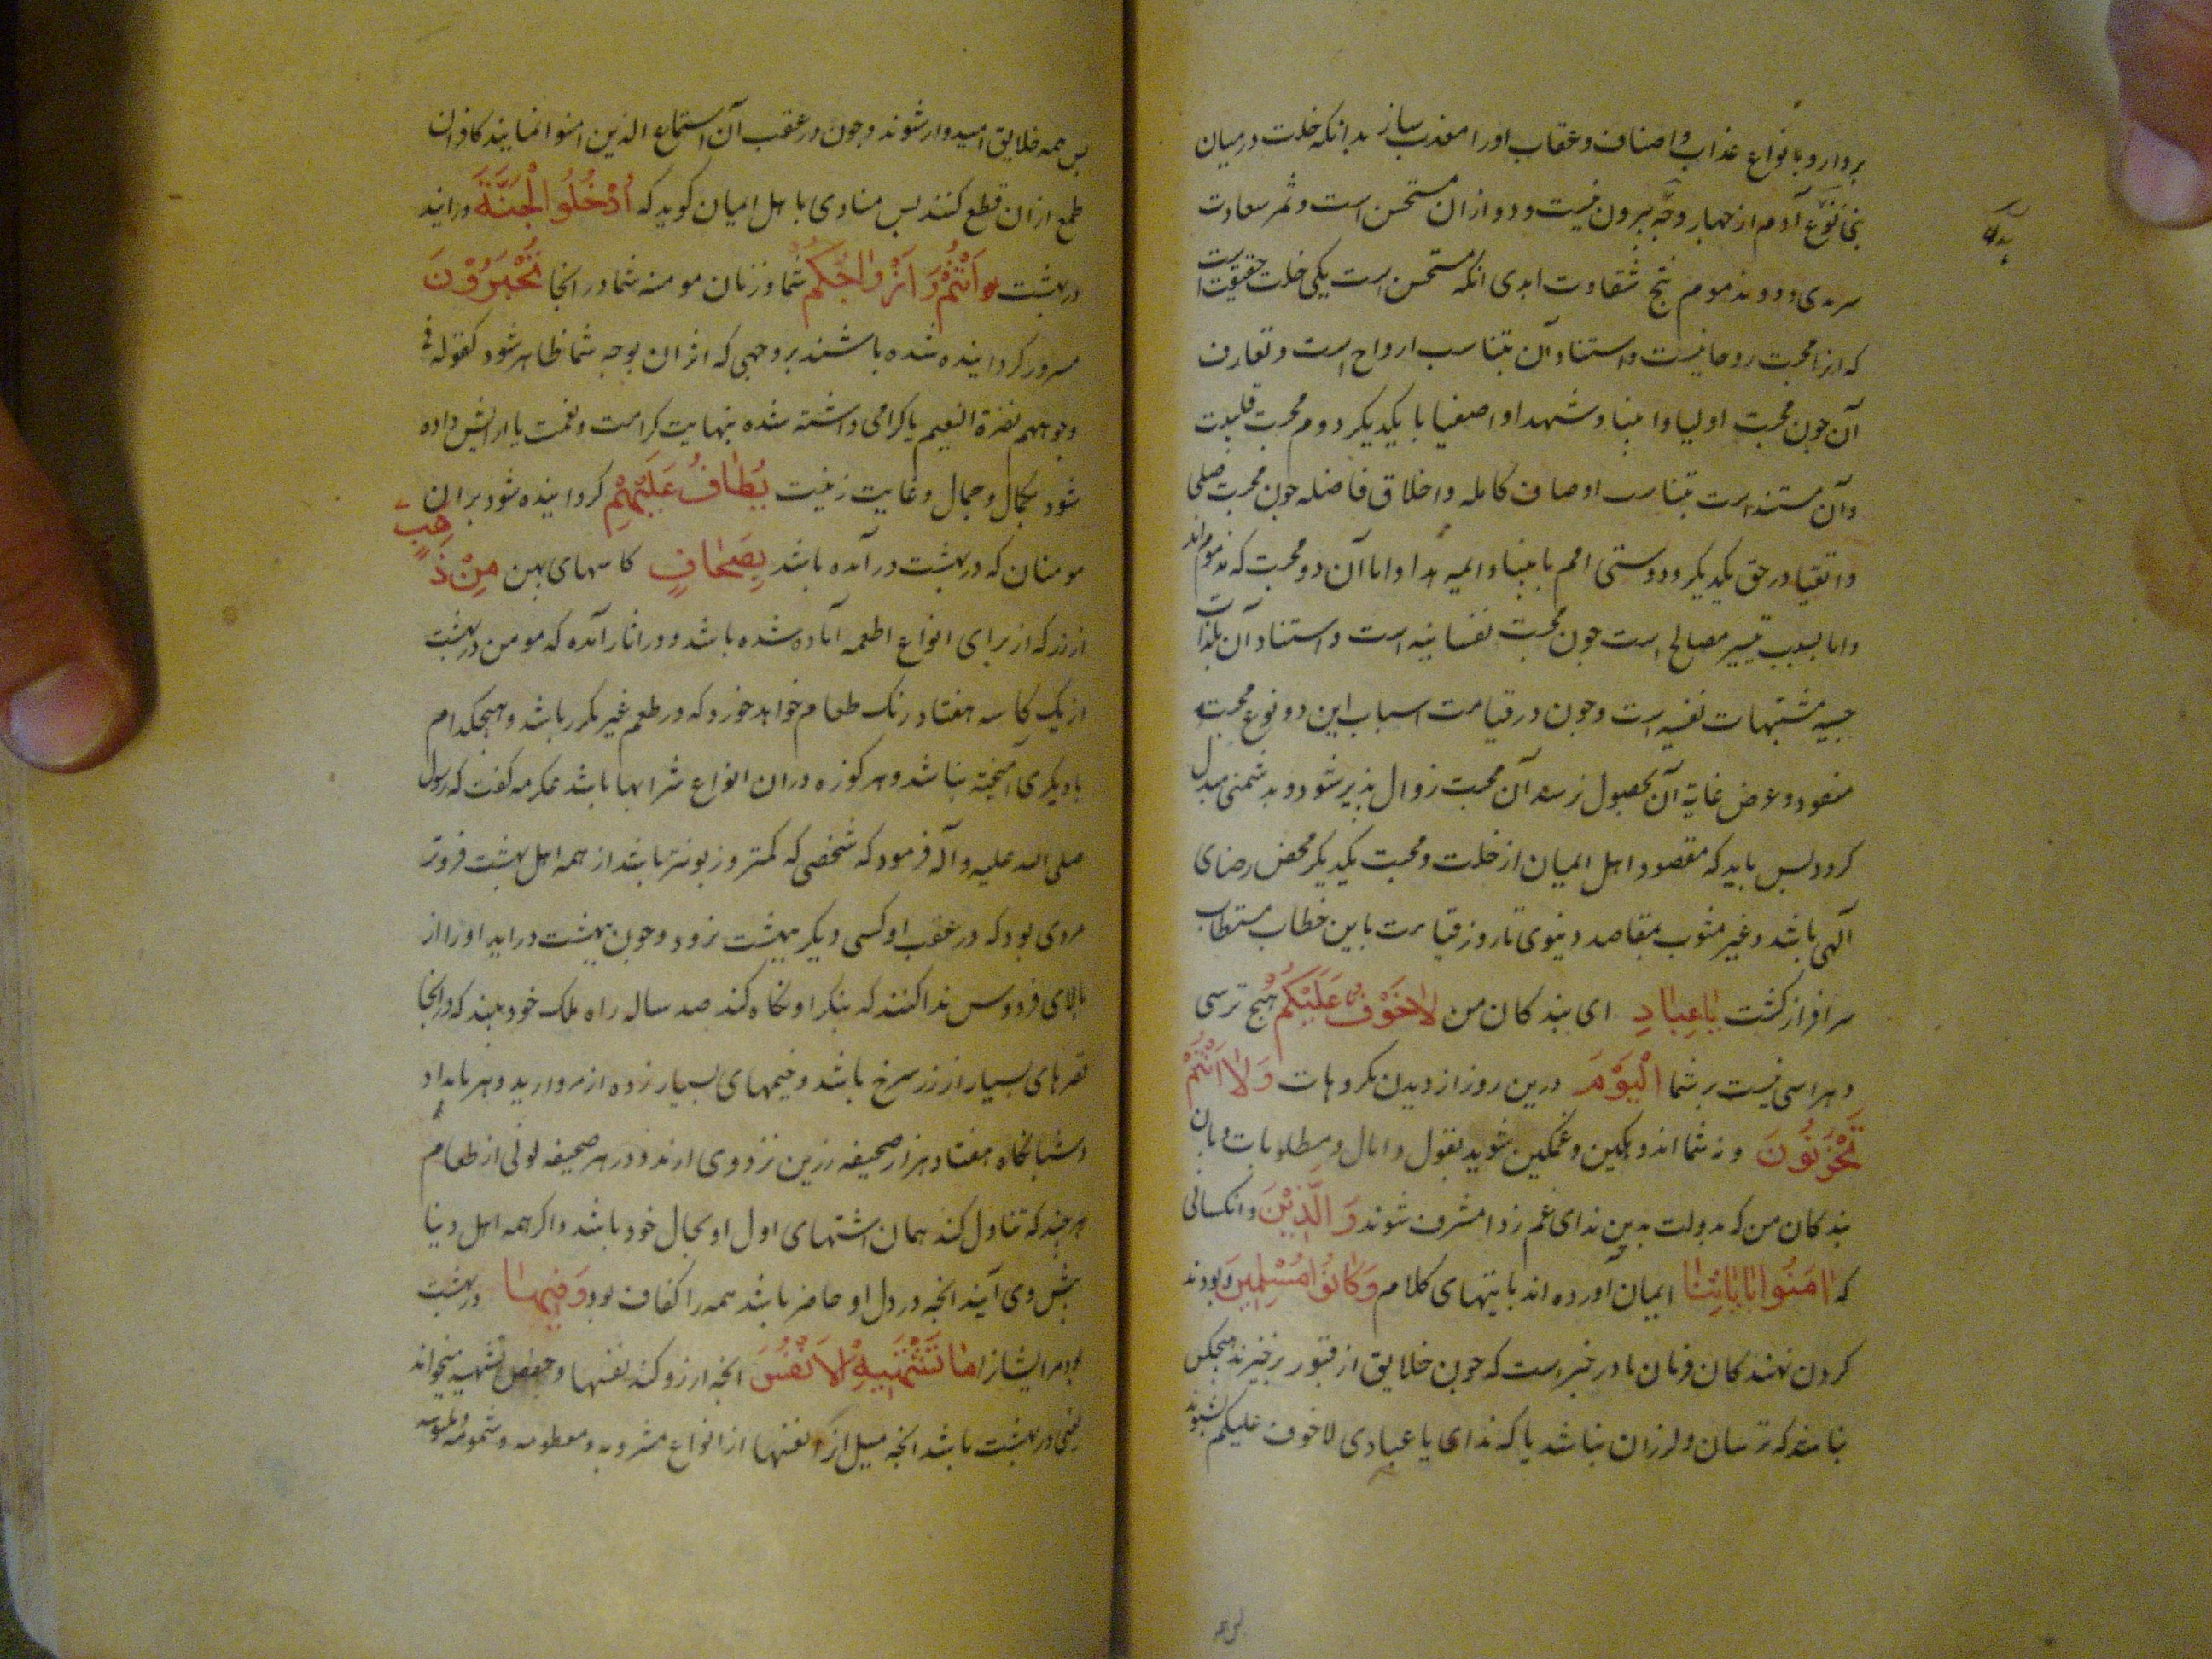 بردارد و بانواع عذاب و اصناف و عقاب اورا معذب سازد بدانکه خلت در میان
بنی نوع آدم از چهار وجه بیرون نیست و دو ازان مستحسن است و مثمر سعادت
بدانکه
سرمدی و دو مذموم منتج شقاوت ابدی انکه مستحسن است یکی خلت حقیقت است
که انرا محبت روحانیست و استناد آن بتناسب ارواح است و تعارف
آن جون محبت اولیا و انبیا و شهدا و اصفیا با یکدیکر دوم محبت قلبیت
و آن مستند است بتناسب اوصاف کامله و اخلاق فاضله جون محبت صلحا
و اتقیا در حق یکدیکر و دوستی امم بانبیا و ایمه هدا و اما آن دو محبت که مذموم اند
و اما بسبب تیسیر مصالح است جون محبت نفسانیه است و استناد آن بلذات
حسیه مشتهیات نفسیه است و جون در قیامت اسباب این دو نوع محبت
مفقود و عرض غایة آن بحصول نرسد آن محبت زوال بذیر شود و بدشمنی مبدل
کردد بس باید که مقصود اهل ایمان از خلت و محبت یکدیکر محض رضای
آلهی باشد و غیر مشوب بمقاصد دنیوی تا روز قیامت باین خطاب مستطاب
سرافراز کشت یَا عِبَادِ ای بندکان من لَا خَوْفٌ عَلَیْکُمُ هیج ترسی
و هراسی نیست بر شما الْیَوْمَ درین روز از دیدن مکروهات وَلَا اَنْتُمْ
تَحْزَنُونَ و نه شما اندوهکین و غمکین شوید بفول و امال و مطلوبات و بان
بندکان من که بدولت بدین ندای غم زدا مشرف شوند وَالَّذِیْنَ و انکسانی
که اٰمَنُوا بِاٰیَاتِنَا ایمان آورده اند بایتهای کلام وَکَانُوا مُسْلِمِینَ و بودند
کردن نهندکان فرمان ما در خبر است که جون خلایق از قبور برخیزند هیجکس
نباشد که ترسان و لرزان نباشد یا که ندای یا عبادی لا خوف علیکم بشنوند
بس همه
بس همه خلایق امیدوار شوند و جون در عقب آن استماع الذین امنوا نمایند کافران
طمع ازان قطع کنند بس منادی با اهل ایمان کوید که اُدْخُلُوا الْجَنَّةَ درایند
در بهشت اَنْتُمْ وَ اَزْوٰاجُکُمْ شما و زنان مومنه شما در انجا تُحْبَرُوْنَ
مسرور کردانیده شده باشند بر وجهی که اثر ان بوجه شما ظاهر شود کقوله فی
وجوههم نضرة النعیم یا کرامی داشته شده بنهایت کرامت و نعمت یا ارایش داده
شود بکمال و جمال و غایت زینت یُطَافُ عَلَیْهِمْ کردانیده شود بران
مومنان که در بهشت در آمده باشد بِصِحَافٍ کاسهای بهن مِنْ ذَهَبٍ
از زر که از برای انواع اطعمه آماده شده باشد و در اثار آمده که مومن در بهشت
از یک کاسه هفتاد رنک طعام خواهد خورد که در طعم غیر مکرر باشد و هیجکدام
با دیکری آمیخته نباشد و هر کوزه دران انواع شرابها باشد عکرمه کفت که رسول
صلی الله علیه و آله فرمود که شخصی که کمتر و زبونتر باشد از همه اهل بهشت فروتر
مردی بود که در عقب او کسی دیکر ببهشت نرود و جون ببهشت دراید اورا از
بالای فردوس ندا کنند که بنکر او نکاه کند صد ساله راه ملک خود بیند که در انجا
قصرهای بسیار از زر سرخ باشد و خیمهای بسیار زده از مروارید و هر بامداد
و شبانکاه هفتاد هزار صحیفه زرین نزد وی ارند و در هر صحیفه لونی از طعام
هر چند که تناول کند همان اشتهای اول او بحال خود باشد و اکر همه اهل دنیا
بیش وی آیند انجه در دل او حاضر باشد همه را کفاف بود وَفِیهَا در بهشت
بود مر ایشانرا مَا تَشْتَهِیهِ الْاَنْفُسُ انجه ارزو کند نفسها و حفص تشتهیه میخواند
یعنی در بهشت باشد انجه میل ارد نفسها از انواع مشروبه و مطعومه و شمومه و ملبوسه